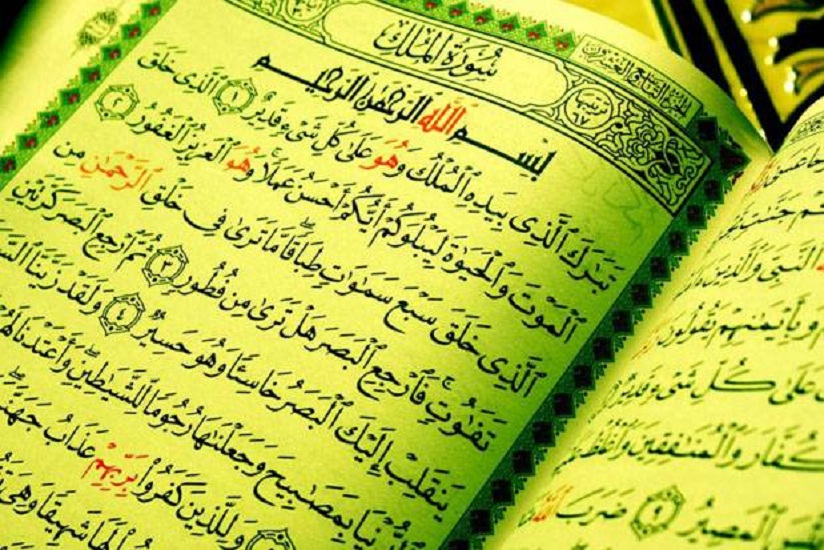 الجزء التاسع والعشرون
سُورَةُ المُلْكِ
بِسْمِ ٱللَّهِ ٱلرَّحْمَٰنِ ٱلرَّحِيمِ
تَبَٰرَكَ ٱلَّذِى بِيَدِهِ ٱلْمُلْكُ وَهُوَ عَلَىٰ كُلِّ شَىْءٍ قَدِيرٌ ١ ٱلَّذِى خَلَقَ
ٱلْمَوْتَ وَٱلْحَيَوٰةَ لِيَبْلُوَكُمْ أَيُّكُمْ أَحْسَنُ عَمَلًا وَهُوَ ٱلْعَزِيزُ ٱلْغَفُورُ ٢
ٱلَّذِى خَلَقَ سَبْعَ سَمَٰوَٰتٍ طِبَاقًا مَّا تَرَىٰ فِى خَلْقِ ٱلرَّحْمَٰنِ مِن
تَفَٰوُتٍ فَٱرْجِعِ ٱلْبَصَرَ هَلْ تَرَىٰ مِن فُطُورٍ ٣ ثُمَّ ٱرْجِعِ ٱلْبَصَرَ كَرَّتَيْنِ
يَنقَلِبْ إِلَيْكَ ٱلْبَصَرُ خَاسِئًا وَهُوَ حَسِيرٌ ٤ وَلَقَدْ زَيَّنَّا
بِمَصَٰبِيحَ وَجَعَلْنَٰهَا رُجُومًا لِّلشَّيَٰطِينِ وَأَعْتَدْنَا
وَلِلَّذِينَ كَفَرُوا۟ بِرَبِّهِمْ عَذَابُ جَهَنَّمَ
شَهِيقًا وَهِىَ
ٱلنَّبِىَّ وَٱلَّذِينَ
وَبِأَيْمَٰنِهِمْ يَقُولُونَ
عَلَىٰ كُلِّ شَىْءٍ قَدِيرٌ
وَٱلْمُنَٰفِقِينَ وَٱغْلُظْ
ٱلْمَصِيرُ ٩ ضَرَبَ ٱللَّهُ